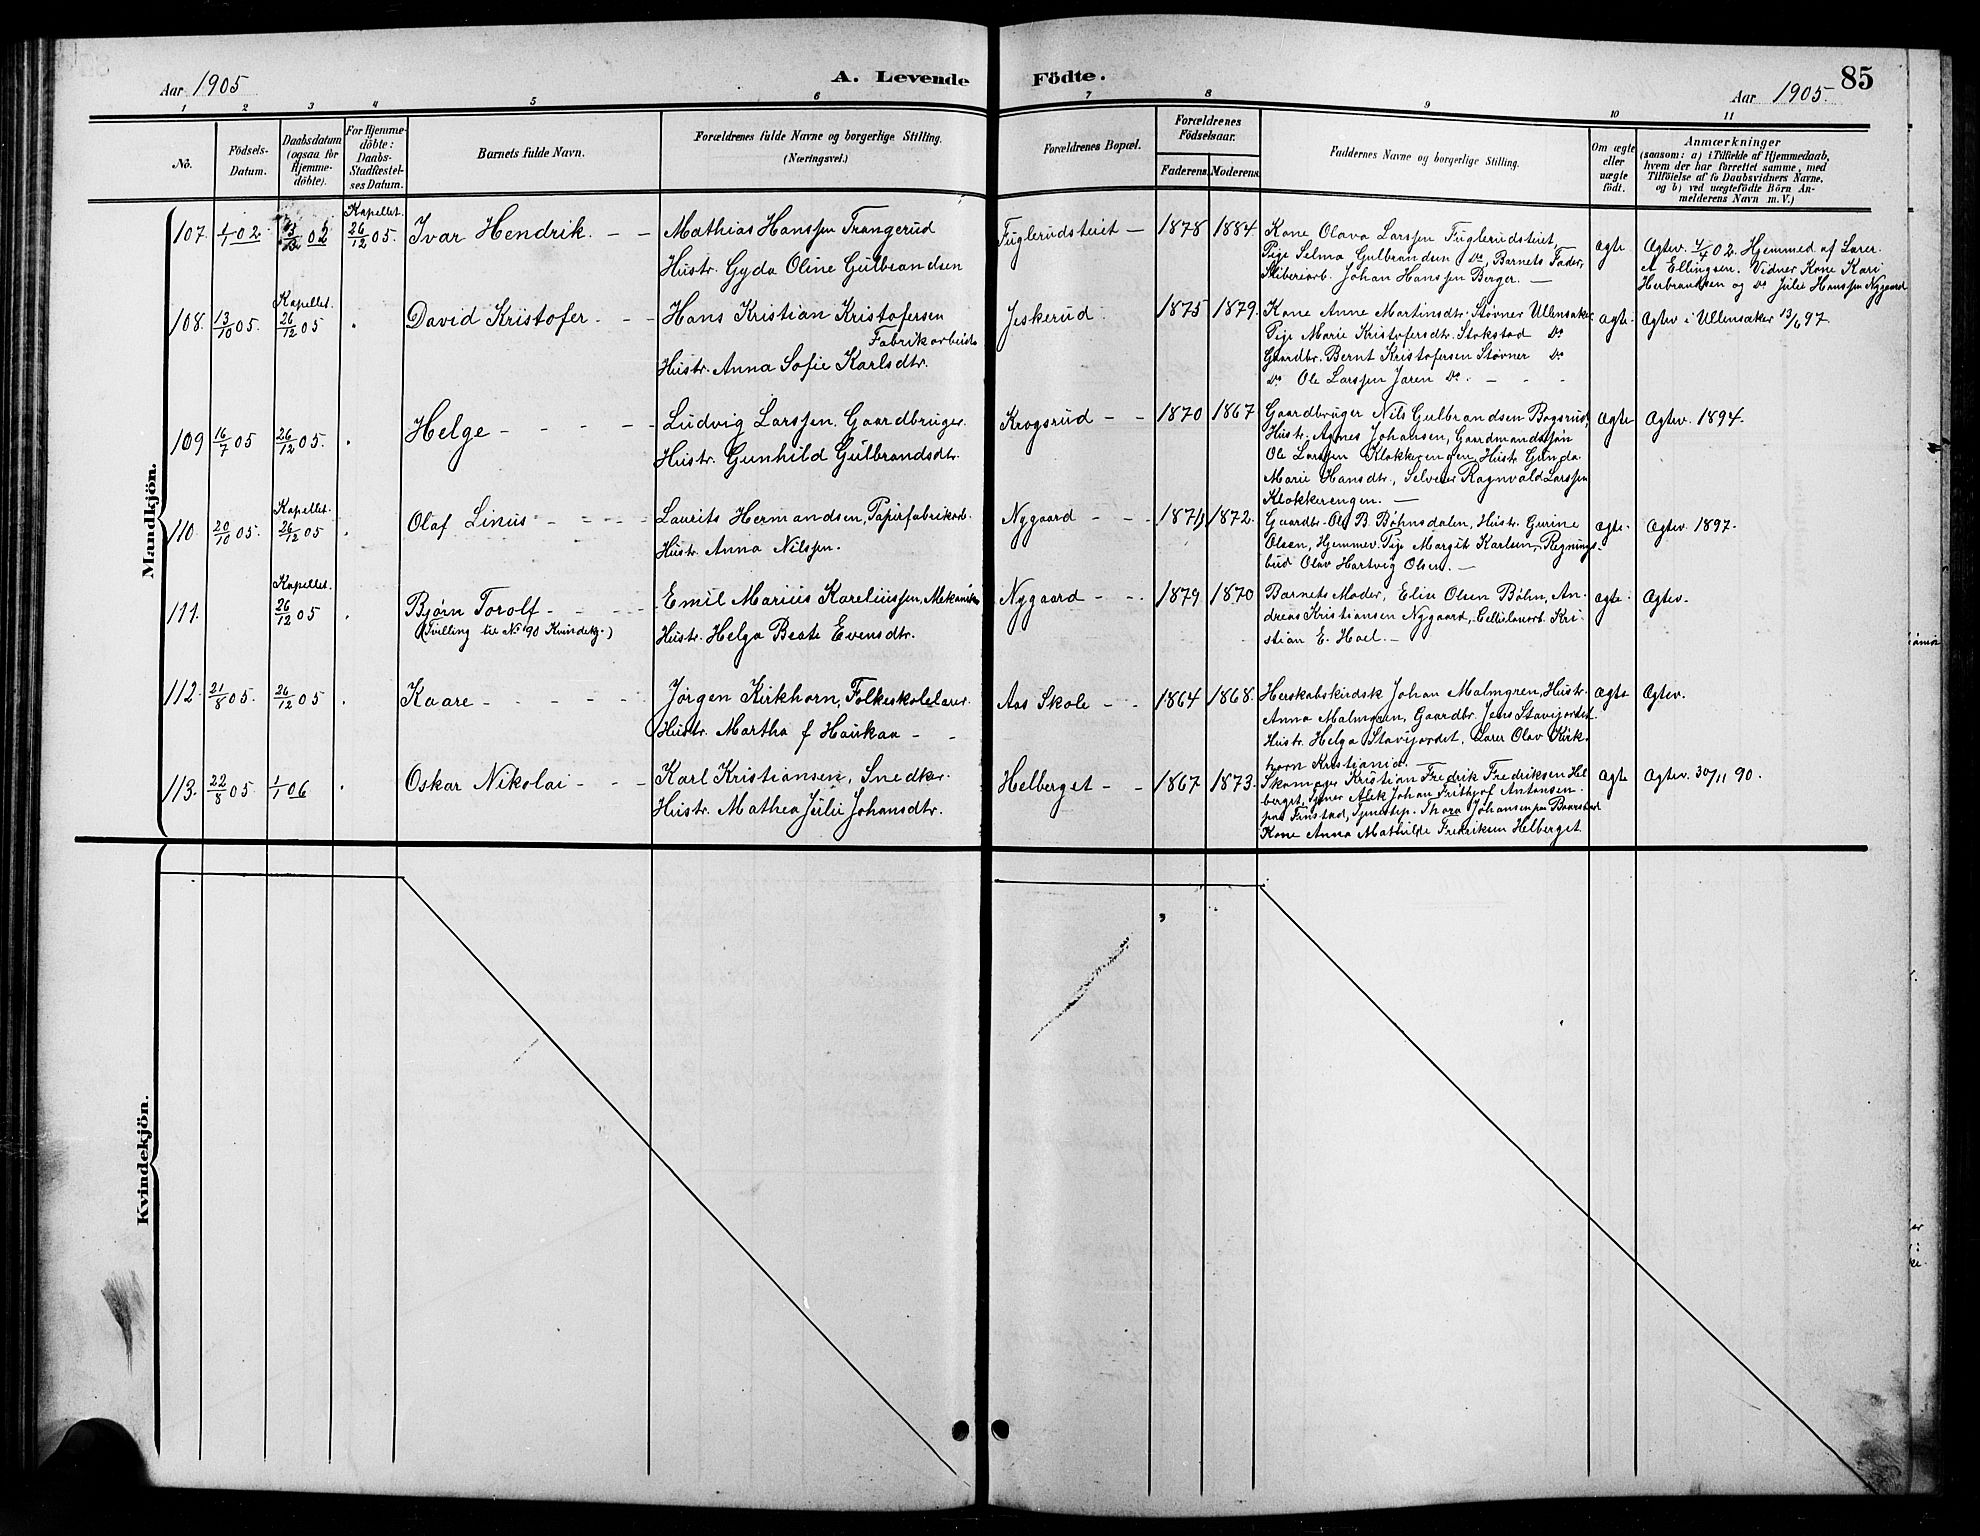 Aar 1905
A. Levende Födte.
Aar 1905.
85
1 2 3 4 5 6 7 8 9 10 11
No.
Födsels-Datum.
Daabsdatum (ogsaa for Hjemme-döbte).
For Hjemme-döbte: Daabs-Stadfæstel-ses Datum.
Barnets fulde Navn.
Forældrenes fulde Navne og borgerlige Stilling.
(Næringsvei.)
Forældrenes Bopæl.
Forældrenes Födselsaar.
Faderens. Moderens.
Faddernes Navne og borgerlige Stilling.
Om ægte eller uægte födt.
Anmærkninger
(saasom: a) i Tilfælde af Hjemmedaab,
hvem der har forrettet samme, med
Tilföielse af to Daabsvidners Navne,
og b) ved uægtefödte Börn An-
melderens Navn m. V.)
Mandkjön.
107. 1/1 02. 02 Kapellet. 26/12 05. Ivar Hendrik. — —
Mathias Hanssen Trangerud
Hustr. Gyda Oline Gulbrandsen
Fuglerudsteiet — 1878 1884
Kone Olava Larssen Fuglerudsteiet
Pige Selma Gulbrandsen Do, Barnets Fader,
Sliberiarb. Johan Hanssen Berger. —
Ægte
Ægtev. 4/4 02. Hjemmed af Lærer
A Ellingsen. Vidner Kone Kari
Herbrandsen og Do Julie Hanssen Nygaard
108. 13/10 05. Kapellet. 26/12 05 David Kristofer. — —
Hans Kristian Kristofersen
Fabrikarbeider
Hustr. Anna Sofie Karlsdtr.
Jeskerud. 1875 1879.
Kone Anne Martinsdtr. Støvner Ullensaker
Pige Marie Kristofersdtr. Stokstad Do
Gaardbr. Bernt Kristofersen Støvner Do
Do Ole Larssen Jaren Do. — - -
ægte. Ægtev i Ullensaker 13/6 97.
109 16/7 05 26/12 05. Helge — - - - -
Ludvig Larssen. Gaardbruger.
Hustr. Gunhild Gulbrandsdtr.
Krogsrud — - 1870 1867
Gaardbruger Nils Gulbrandsen Bogsrud,
Hustr. Agnes Johansen, Gaardmandssøn
Ole Larssen Klokkerengen, Hustr Gunda
Marie Hansdtr., Selveier Ragnvald Larssen
Klokkerengen. —
Ægte Ægtev. 1894.
110. 20/10 05. Kapellet. 26/12 05 Olaf Linus - - - -
Laurits Hermandsen, Papirfabrikarb.
Hustr. Anna Nilssen.
Nygaard - - - 1872.
Gaardbr. Ole B. Bøhnsdalen, Hustr. Gurine
Olsen, Hjemmev. Pige Margit Karlsen, Regnings-
bud Olav Hartvig Olsen. —
ægte. Ægtev. 1897.
111. Kapellet. 26/12 05 Bjørn Torolf - - - -
(Tvilling til No 90 Kvindekj.)
Emil Marius Kareliussen, Mekaniker
Hustr. Helga Beate Evensdtr.
Nygaard - - 1879 1870
Barnets Moder, Elise Olsen Bøhn, An-
dreas Kristiansen Nygaard, Cellulosearb. Kri-
stian E. Hoel. —
ægte. Ægtev.
112. 21/8 05. 26/12 05 Kaare - - - - -
Jørgen Kirkhorn, Folkeskolelærer.
Hustr. Martha f Haukaa - -
Aas Skole - - 1864 1868.
Herskabskudsk Johan Malmgren, Hustr.
Anna Malmgren, Gaardbr. Jens Stavijordet.
Hustr. Helga Stavijordet, Lærer Olav Kirk-
horn Kristiania. —
Ægte Ægtev.
113. 22/8 05 1/1 06 Oskar Nikolai - - -
Karl Kristiansen, Snedker.
Hustr. Mathea Julie Johansdtr.
Helberget - - 1867 1873.
Skomager Kristian Fredrik Fredriksen Hel-
berget, Tjener Alek Johan Frithjof Antonsen
paa Finstad, Tjenestep. Thora Johansen paa Baarstad
Kone Anna Mathilde Fredriksen Helberget
Ægte Ægtev. 30/11 90.
Kvindekjön.